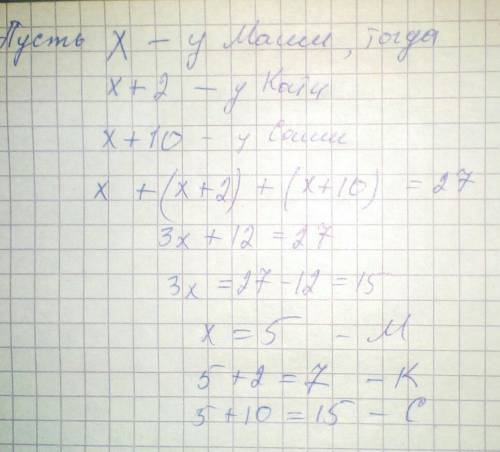 Пусть X - у Маши, тогда
x+2 - у Кати
x+10 - у Саши
x + (x+2) + (x+10) = 27
3x + 12 = 27
3x = 27 - 12 = 15
x = 5 - М
5 + 2 = 7 - К
5 + 10 = 15 - С